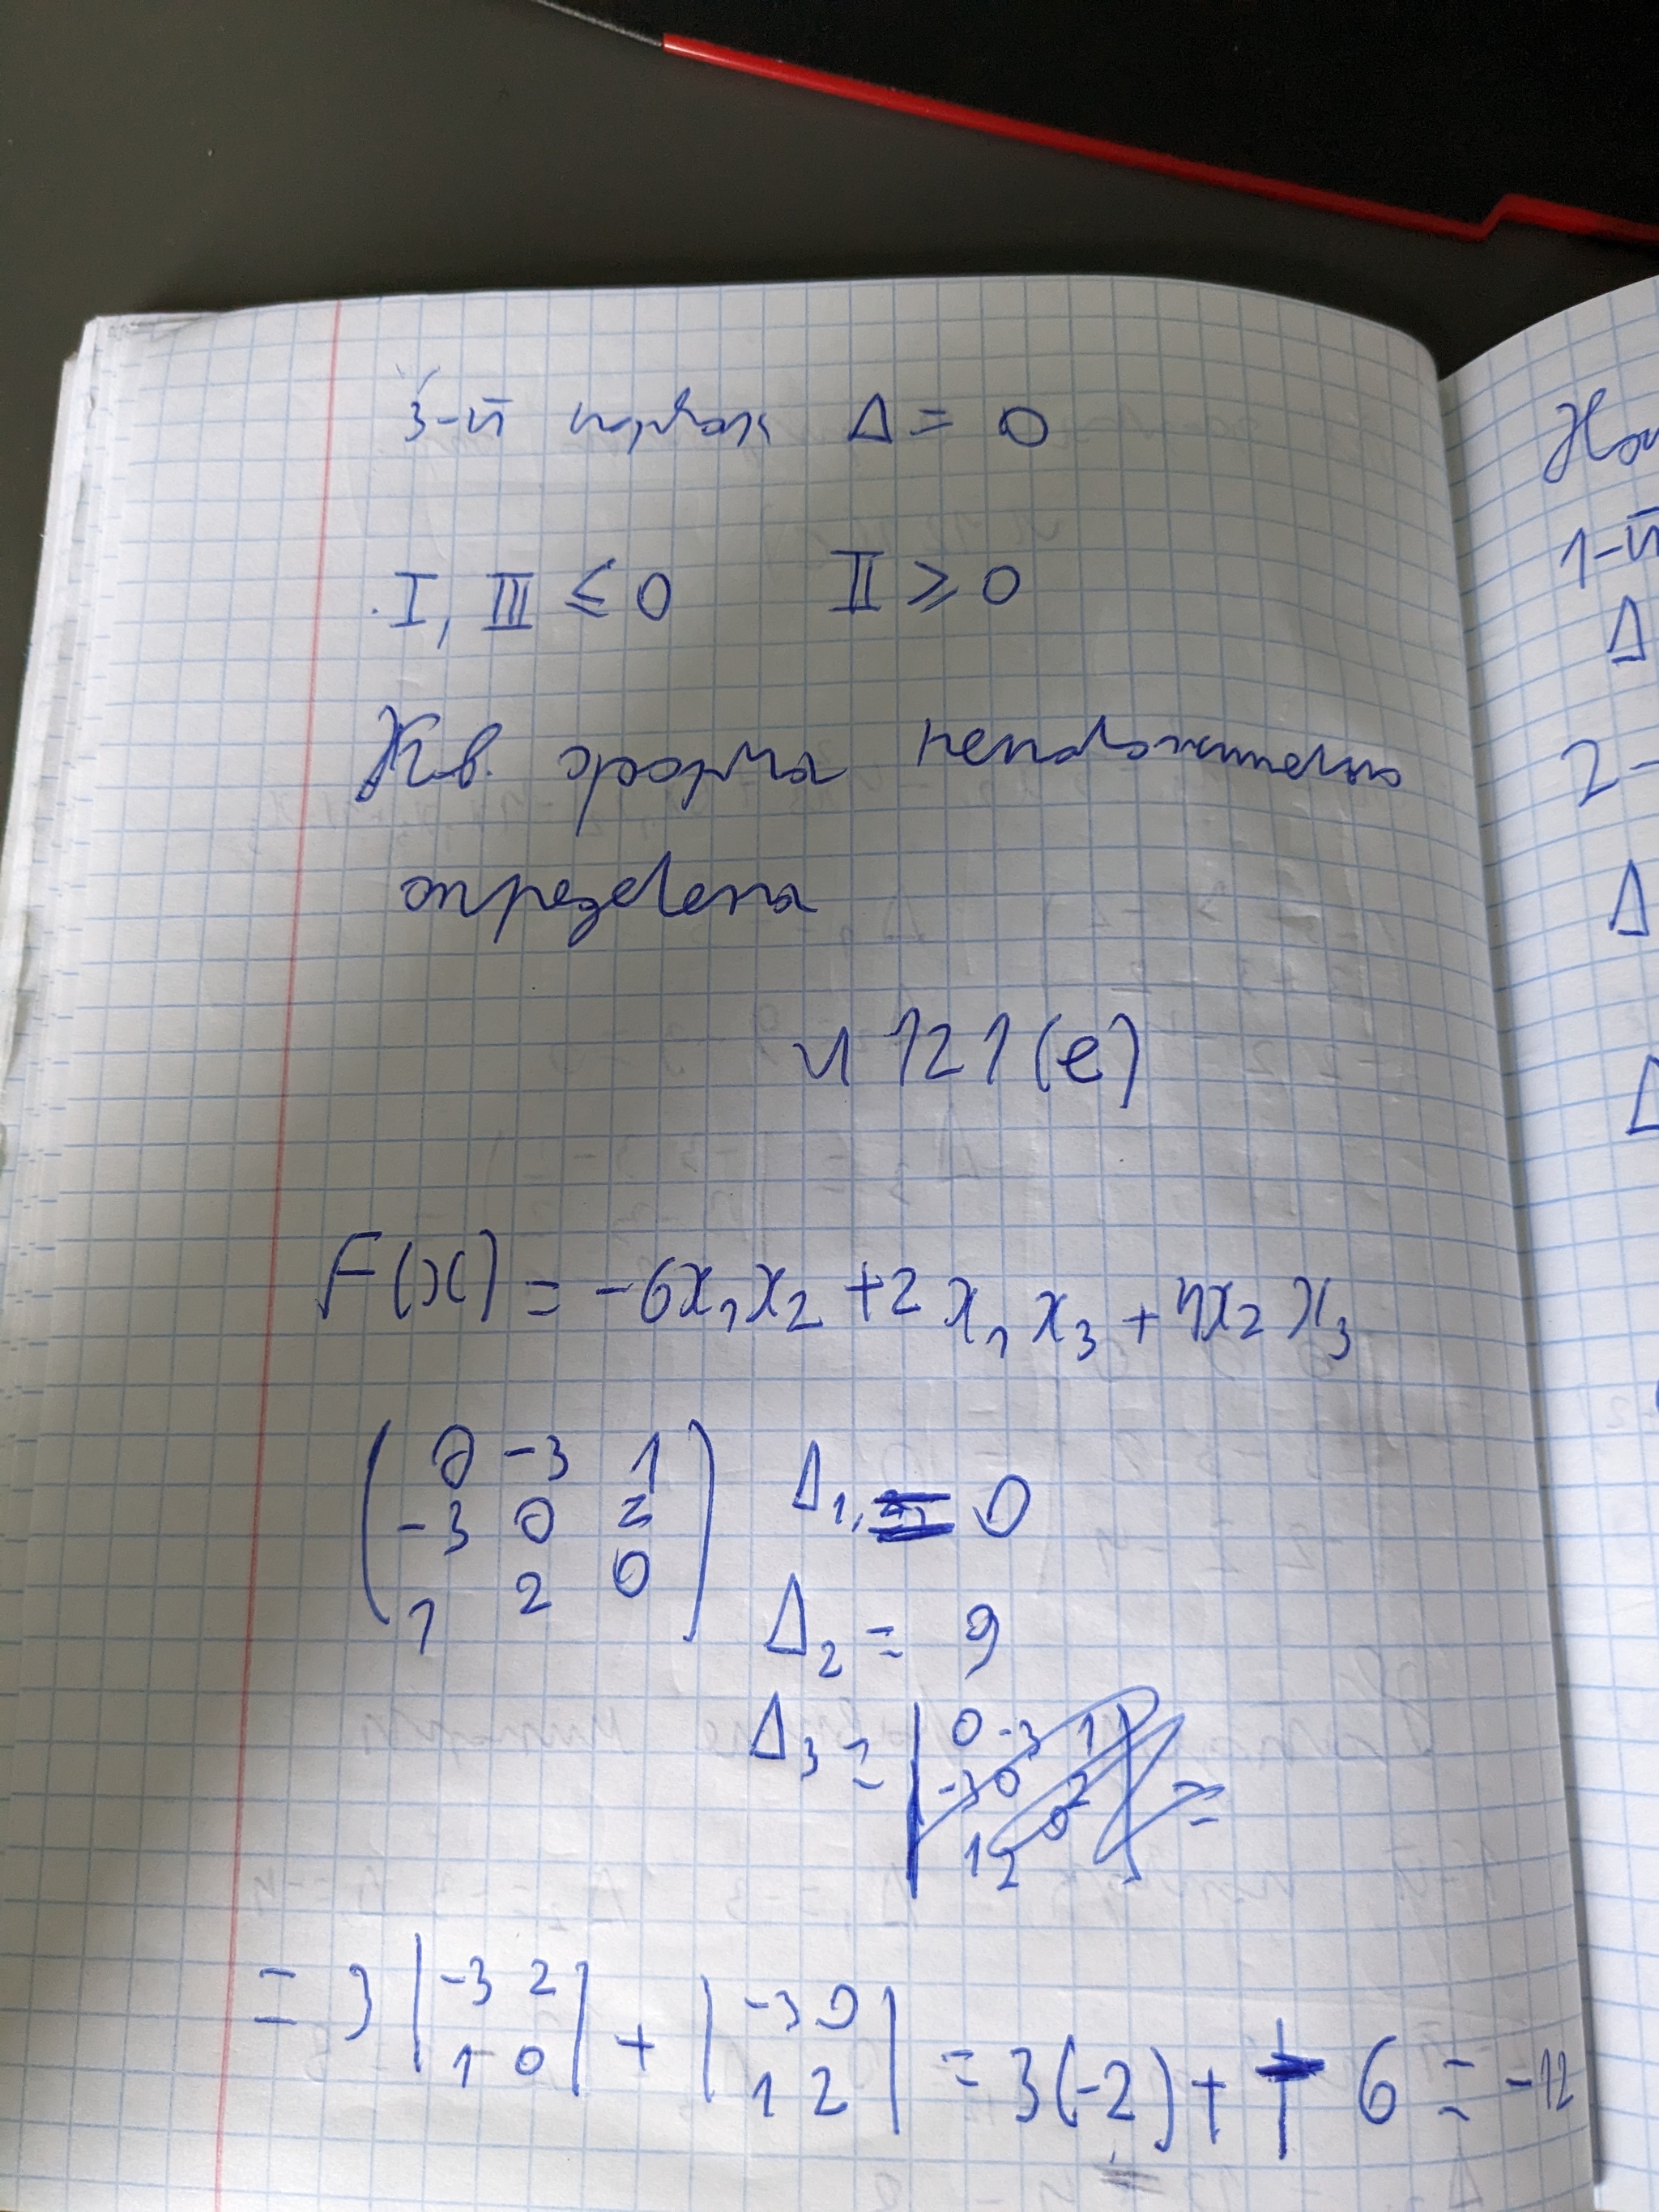 3-й порядок Δ = 0
I, III ≤ 0 II ≥ 0
Кв. форма неположительно
определена
N 121(e)
F(x) = -6x₁x₂ + 2x₁x₃ + 4x₂x₃
( 0 -3 1 ) Δ₁ = 0
-3 0 2
1 2 0
Δ₂ = 9
Δ₃ = | 0 -3 1 | =
-3 0 2
1 2 0
= 3 | -3 2 | + | -3 0 | = 3(-2) + 6 = -12
1 0 1 2
1-й
Δ
2-
Δ
Δ